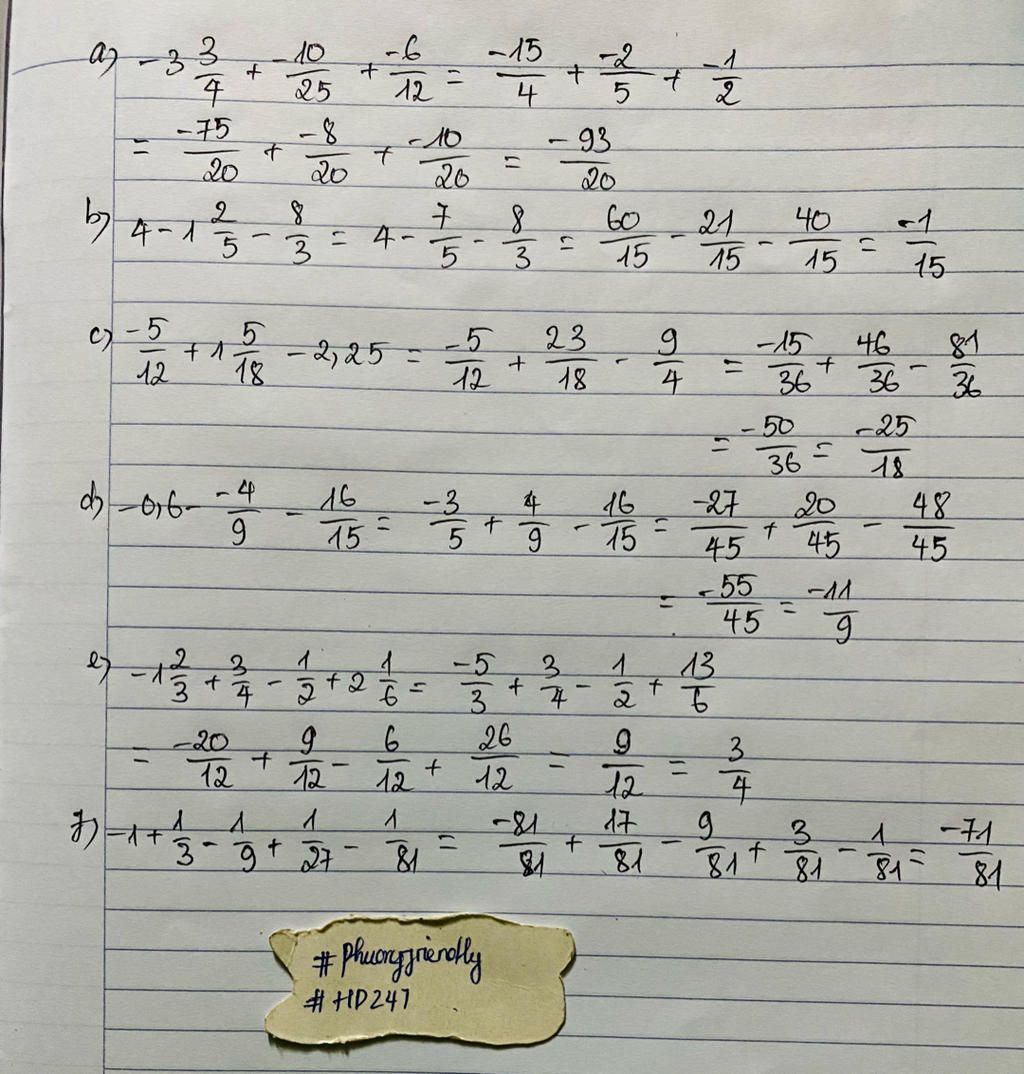 a) -3 3/4 + -10/25 + -6/12 = -15/4 + -2/5 + -1/2
= -75/20 + -8/20 + -10/20 = -93/20
b) 4 - 1 2/5 - 8/3 = 4 - 7/5 - 8/3 = 60/15 - 21/15 - 40/15 = -1/15
c) -5/12 + 1 5/18 - 2,25 = -5/12 + 23/18 - 9/4 = -15/36 + 46/36 - 81/36
= -50/36 = -25/18
d) -0,6 - -4/9 - 16/15 = -3/5 + 4/9 - 16/15 = -27/45 + 20/45 - 48/45
= -55/45 = -11/9
e) -1 2/3 + 3/4 - 1/2 + 2 1/6 = -5/3 + 3/4 - 1/2 + 13/6
= -20/12 + 9/12 - 6/12 + 26/12 = 9/12 = 3/4
f) -1 + 1/3 - 1/9 + 1/27 - 1/81 = -81/81 + 17/81 - 9/81 + 3/81 - 1/81 = -71/81
#phuongfriendly
#HD247